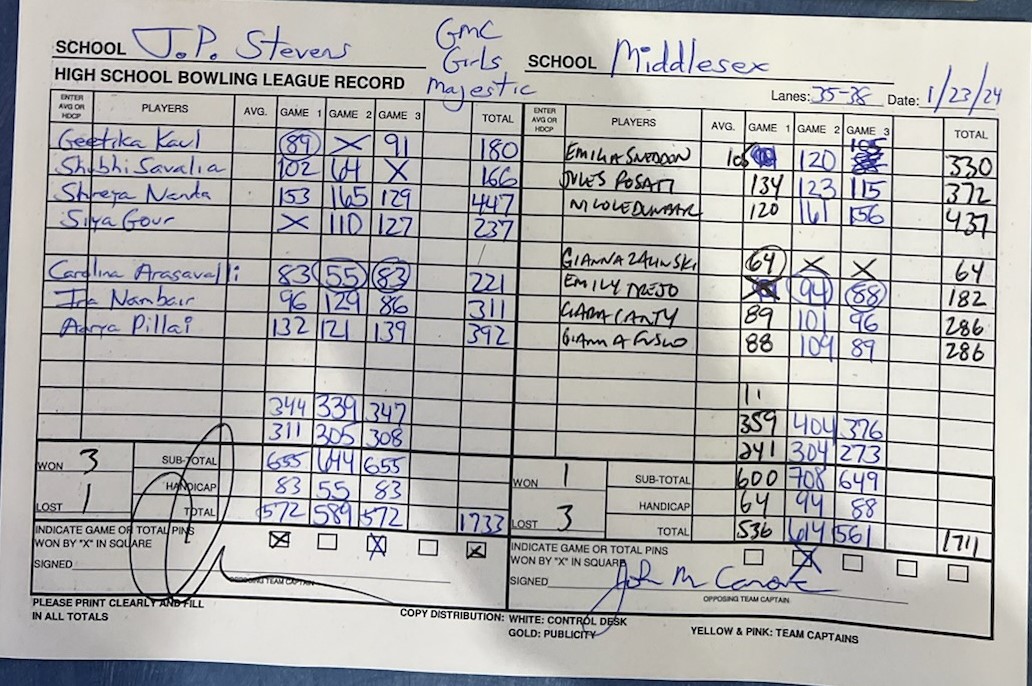 SCHOOL J.P. Stevens
GMC
Girls
Majestic
SCHOOL Middlesex
HIGH SCHOOL BOWLING LEAGUE RECORD
Lanes: 35-38 Date: 1/23/24
ENTER AVG OR HDCP PLAYERS AVG. GAME 1 GAME 2 GAME 3 TOTAL
Geetika Kaul 89 X 91 180
Shubhi Savalia 102 64 X 166
Shreya Nanda 153 165 129 447
Siya Gour X 110 127 237
Carolina Arasavalli 83 55 83 221
Ira Nambair 96 129 86 311
Aarya Pillai 132 121 139 392
344 339 347
311 305 308
WON 3 SUB-TOTAL 655 644 655
HANDICAP 83 55 83
LOST 1 TOTAL 572 589 572 1733
INDICATE GAME OR TOTAL PINS
WON BY "X" IN SQUARE X X X
SIGNED
OPPOSING TEAM CAPTAIN
ENTER AVG OR HDCP PLAYERS AVG. GAME 1 GAME 2 GAME 3 TOTAL
EMILIA SNEDDON 105 120 105 330
JULES POSATI 134 123 115 372
NICOLE DUNBAR 120 161 156 437
GIANNA ZALINSKI 64 X X 64
EMILY TREJO 94 88 182
CARA CANTY 89 101 96 286
GIANNA FUSCO 88 109 89 286
11
359 404 376
241 304 273
WON 1 SUB-TOTAL 600 708 649
HANDICAP 64 94 88
LOST 3 TOTAL 536 614 561 1711
INDICATE GAME OR TOTAL PINS
WON BY "X" IN SQUARE X
SIGNED John M
OPPOSING TEAM CAPTAIN
PLEASE PRINT CLEARLY AND FILL
IN ALL TOTALS
COPY DISTRIBUTION: WHITE: CONTROL DESK
GOLD: PUBLICITY
YELLOW & PINK: TEAM CAPTAINS